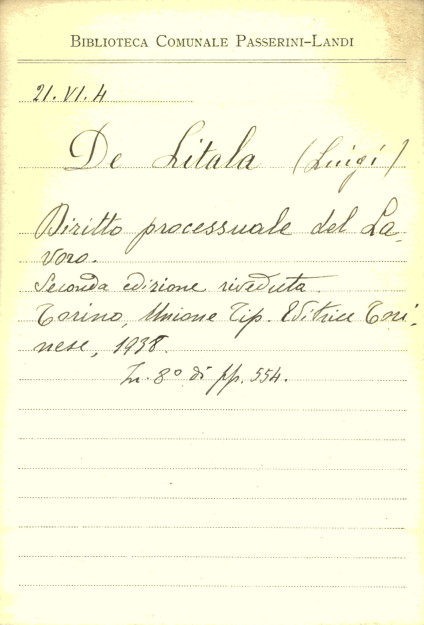 BIBLIOTECA COMUNALE PASSERINI-LANDI
21.VI.4
De Litala (Luigi)
Diritto processuale del La-
voro.
Seconda edizione riveduta.
Torino, Unione Tip. Editrice Tori-
nese, 1938.
In. 8° di pp. 554.